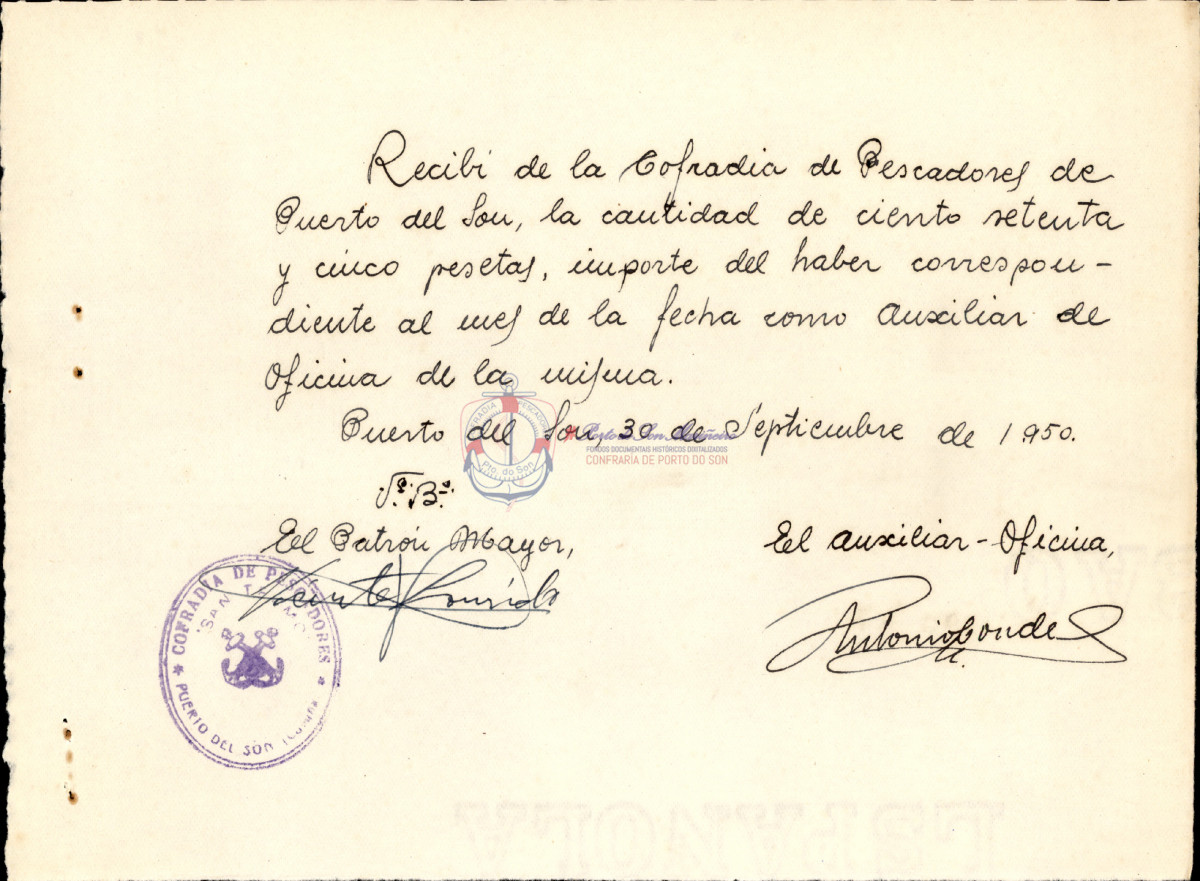 Recibi de la Cofradia de Pescadores de
Puerto del Son, la cantidad de ciento setenta
y cinco pesetas, importe del haber correspon-
diente al mes de la fecha como Auxiliar de
Oficina de la misma.
Puerto del Son, 30 de Septiembre de 1950.
CONFRARIA PESCADORES
Pto. do Son
FONDOS DOCUMENTAIS HISTÓRICOS DIXITALIZADOS
CONFRARÍA DE PORTO DO SON
Vº. Bº.
El Patrón Mayor,
El Auxiliar-Oficina,
Vicente
Antonio Conde
COFRADIA DE PESCADORES
"SAN TELMO"
PUERTO DEL SON
ESPAÑOLA